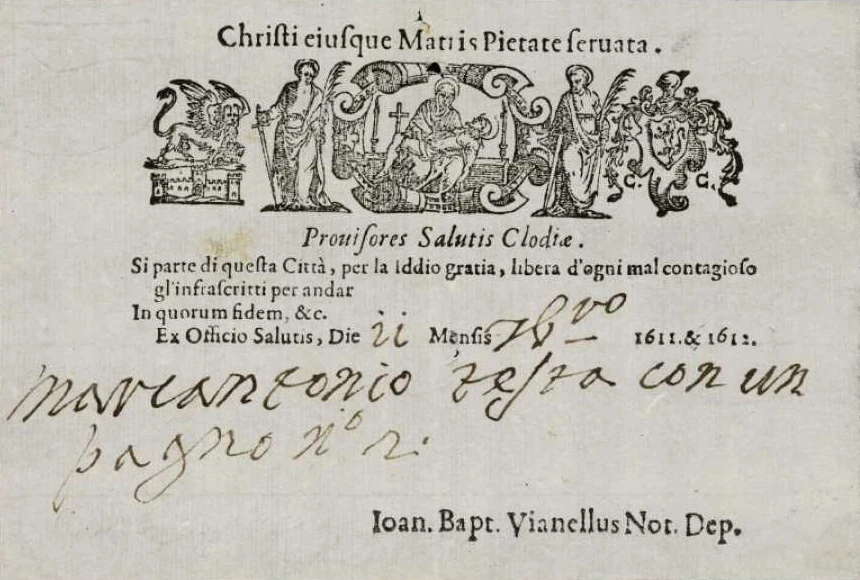 Chriſti eiuſque Matris Pietate ſeruata.
C. C.
Prouiſores Salutis Clodiæ.
Si parte di queſta Città, per la Iddio gratia, libera d'ogni mal contagioſo
gl'infraſcritti per andar
In quorum fidem, &c.
Ex Officio Salutis, Die ii Menſis 1611. & 1612.
Marcantonio teſta con un
pagno nº 2.
Ioan. Bapt. Vianellus Not. Dep.